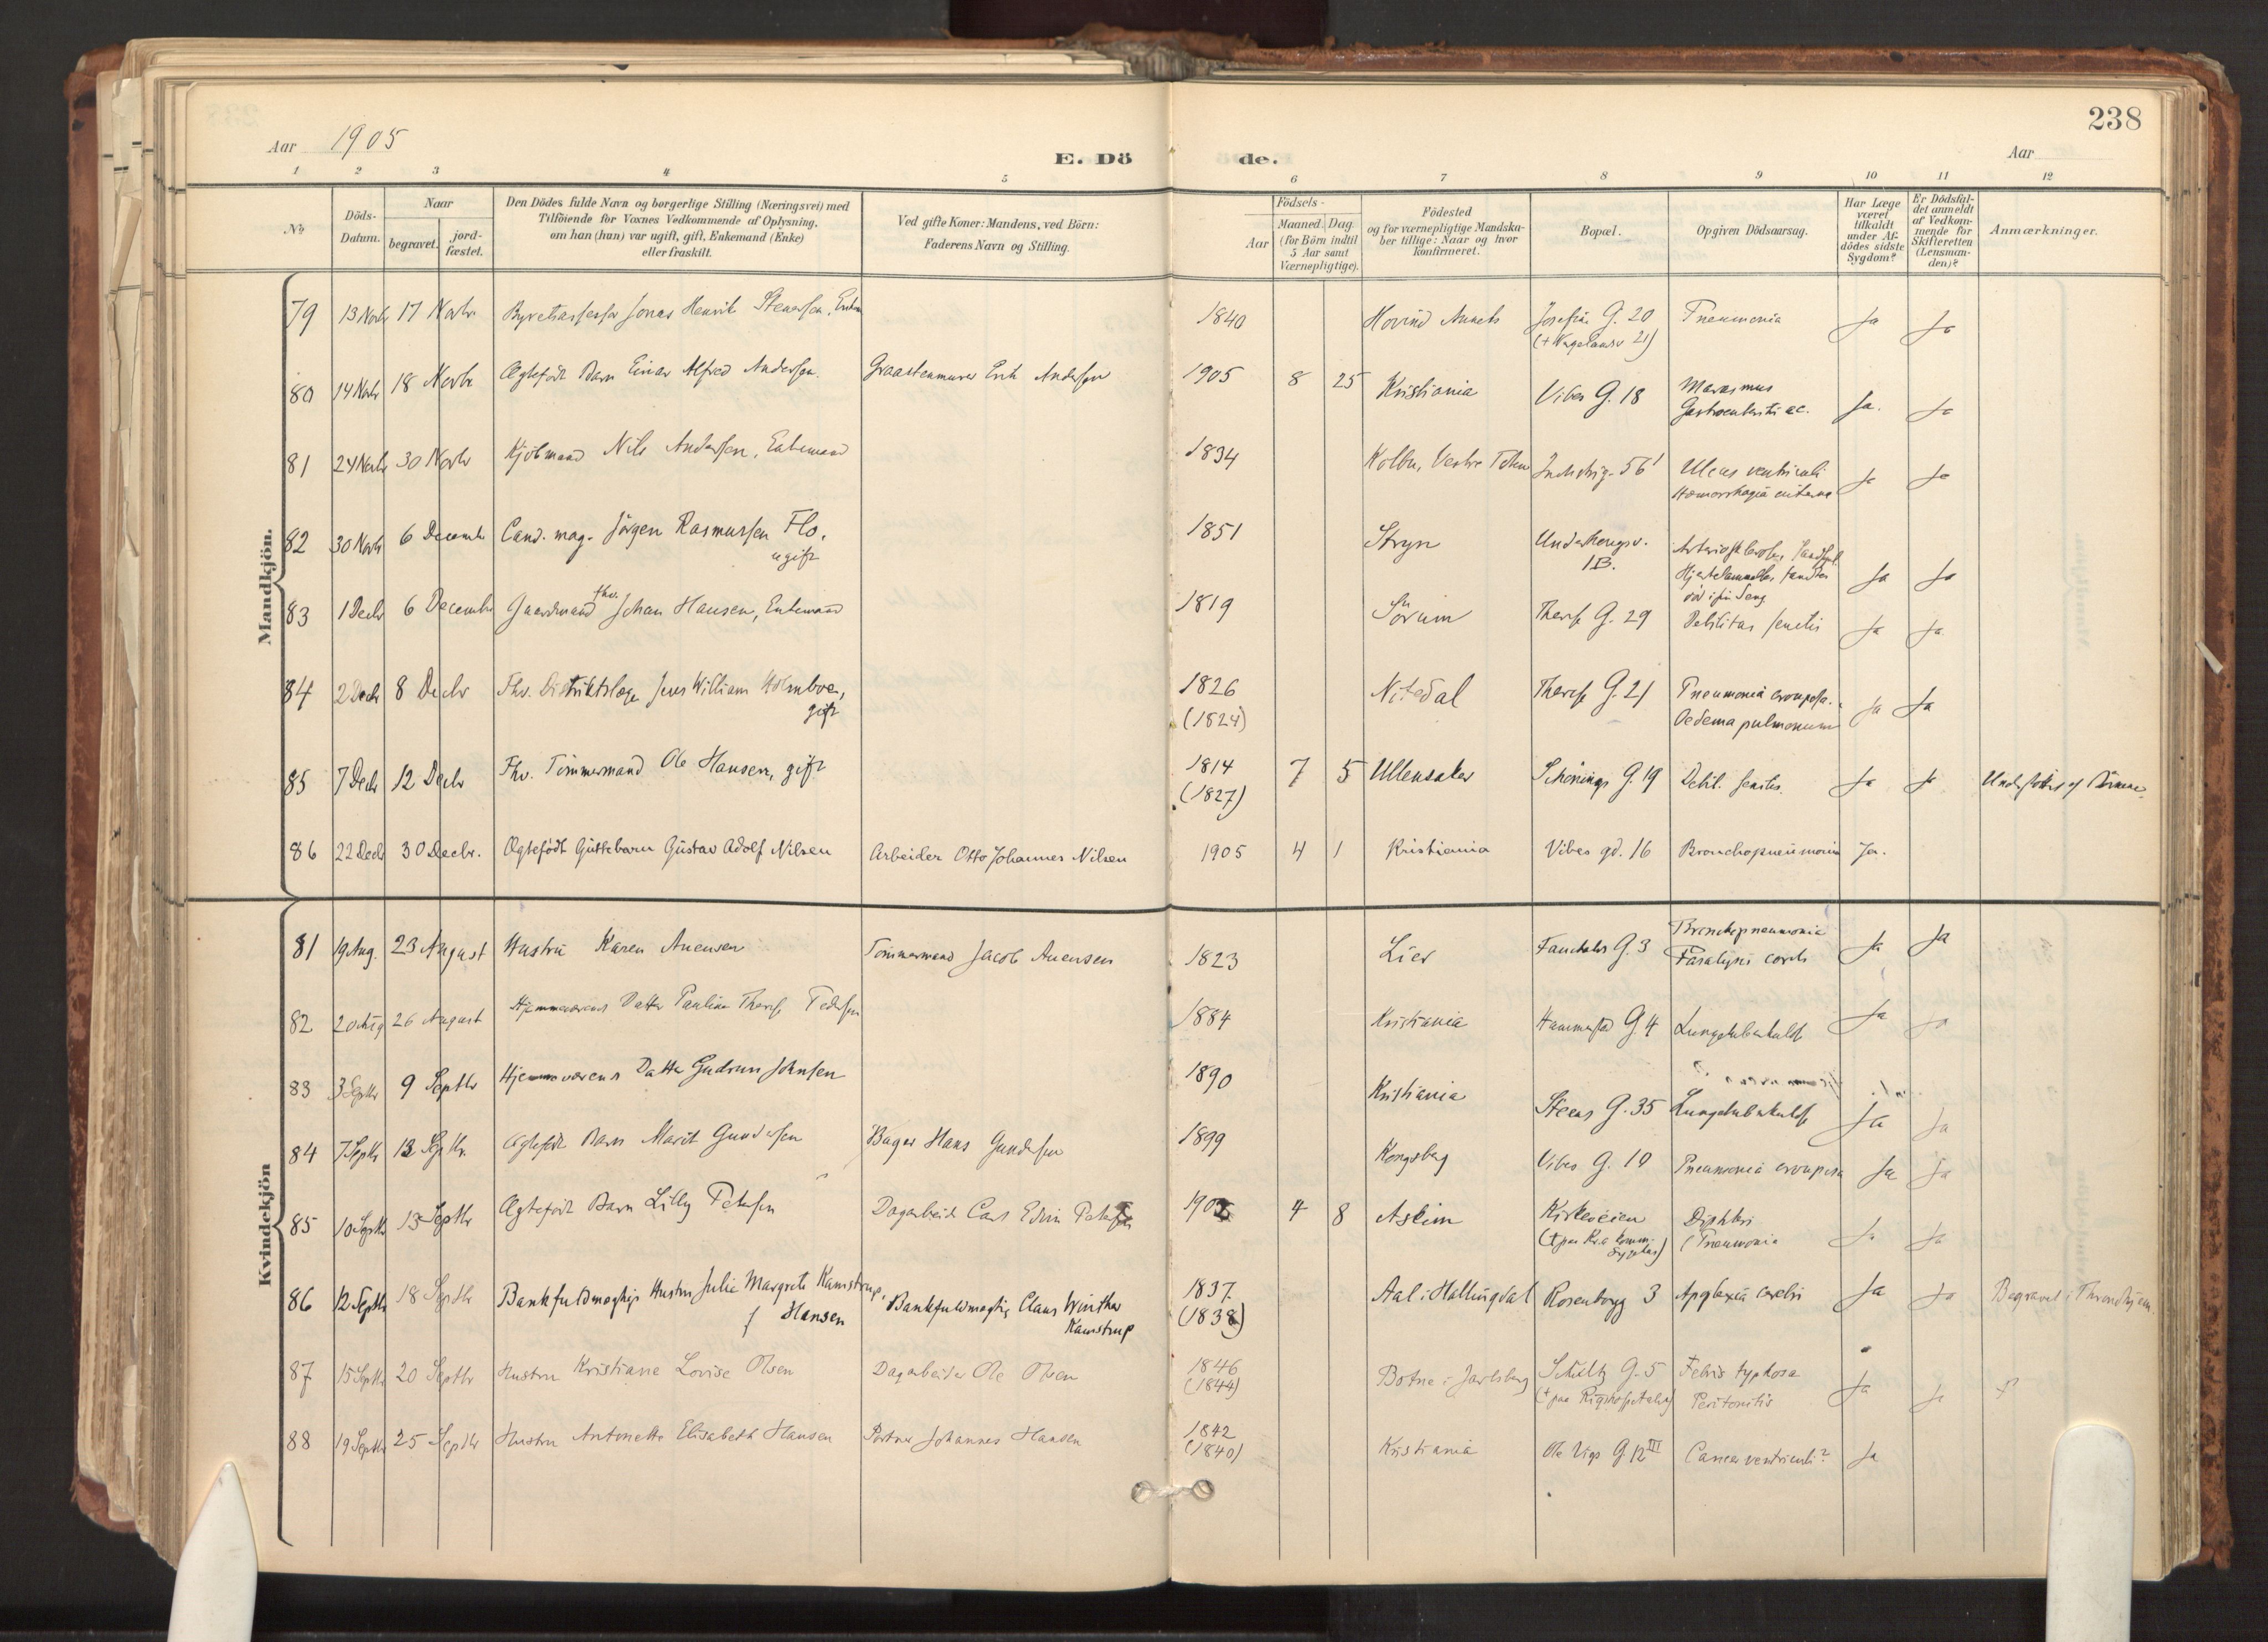 238
Aar 1905
E. Döde.
Aar
1 2 3 4 5 6 7 8 9 10 11 12
No.
Döds-Datum.
Naar
begravet.
jord-fæstet.
Den Dödes fulde Navn og borgerlige Stilling (Næringsvei) med
Tilföiende for Voxnes Vedkommende af Oplysning,
om han (hun) var ugift, gift, Enkemand (Enke)
eller fraskilt.
Ved gifte Koner: Mandens, ved Börn:
Faderens Navn og Stilling.
Födsels-
Aar
Maaned. Dag.
(for Börn indtil
5 Aar samt
Værnepligtige).
Födested
og for værnepligtige Mandska-
ber tillige: Naar og hvor
konfirmeret.
Bopæl.
Opgiven Dödsaarsag.
Har Læge
været
tilkaldt
under Af-
dödes sidste
Sygdom?
Er Dödsfal-
det anmeldt
af Vedkom-
mende for
Skifteretten
(Lensman-
den)?
Anmærkninger.
Mandkjön.
79 13 Novbr 17 Novbr. Jonas Henrik Stenersen, 1840 Hovind Josefine G. 20 Pneumonia Ja Ja
80 14 Novbr 18 Novbr Ægtefödt Barn Einar Alfred Andersen. Graastenmurer Erik Andersen 1905 8 25 Kristiania Vibes G. 18 Marasmus
Ja. Ja
81 24 Novbr 30 Novbr Nils Andersen, Enkemand 1834 Kolbu, Vestre Toten Industrig. 56 Ulcus ventriculi
Ja Ja
82 30 Novbr 6 Decembr Cand. mag. Jörgen Rasmussen Flo,
ugift 1851 Stryn
1B. Ja Ja
83 1 Decbr 6 Decembr Gaardmand fhv. Johan Hansen, Enkemand 1819 Sörum Therese G. 29 Debilitas senilis Ja Ja
84 2 Decbr 8 Decbr Fhv. Distriktslæge Jens William Holmboe,
gift 1826
(1824) Nitedal Therese G. 21 Pneumonia crouposa.
Oedema pulmonum Ja Ja
85 7 Decbr 12 Decbr Fhv. Tömmermand Ole Hansen, gift 1814
(1827) 7 5 Ullensaker Schönings G. 19 Debil. senilis. Ja Ja
86 22 Decbr 30 Decbr. Ægtefödt Guttebarn Gustav Adolf Nilsen Arbeider Otto Johannes Nilsen 1905 4 1 Kristiania Vibes gd. 16 Bronchopneumonia Ja.
Kvindekjön
81 19 Aug. 23 August Hustru Karen Auensen Tömmermand Jacob Auensen 1823 Lier Fauchalds G. 3 Bronchopneumonia
Paralysis cordis Ja Ja
82 20 Aug 26 August Hjemmeværens Datter Pauline Therese Pedersen 1884 Kristiania Hammersd G. 4 Lungetuberkulose Ja Ja
83 3 Septbr 9 Septbr Hjemmeværens Datter Gudrun Johnsen 1890 Kristiania Steens G. 35 Lungetuberkulose Ja Ja
84 7 Septbr 13 Septbr. Ægtefödt Barn Marit Gundersen Bager Hans Gundersen 1899 Kongsberg Vibes G. 19 Pneumonia crouposa Ja Ja
85 10 Septbr 13 Septbr Ægtefödt Barn Lilly Petersen Dagarbeider Carl Edvin Petersen 4 8 Askim Kirkeveien
Difteri
Pneumonia Ja Ja
86 12 Septbr 18 Septbr Bankfuldmægtigs Hustru Julie Margrete Kamstrup,
f Hansen Bankfuldmægtig Claus Winther
Kamstrup 1837
(1838) Aal i Hallingdal Rosenborgg 3 Apoplexia cerebri Ja Ja Begravet i Throndhjem.
87 15 Septbr 20 Septbr Hustru Kristiane Lovise Olsen Dagarbeider Ole Olsen 1846
(1844) Botne i Jarlsberg Schultz G. 5
(+ paa Rigshospitalet) Febris typhosa
Peritonitis Ja Ja
88 19 Septbr 25 Septbr Hustru Antonette Elisabeth Hansen Portner Johannes Hansen 1842
(1840) Kristiania Ole Vigs G 12 III Cancer ventriculi? Ja